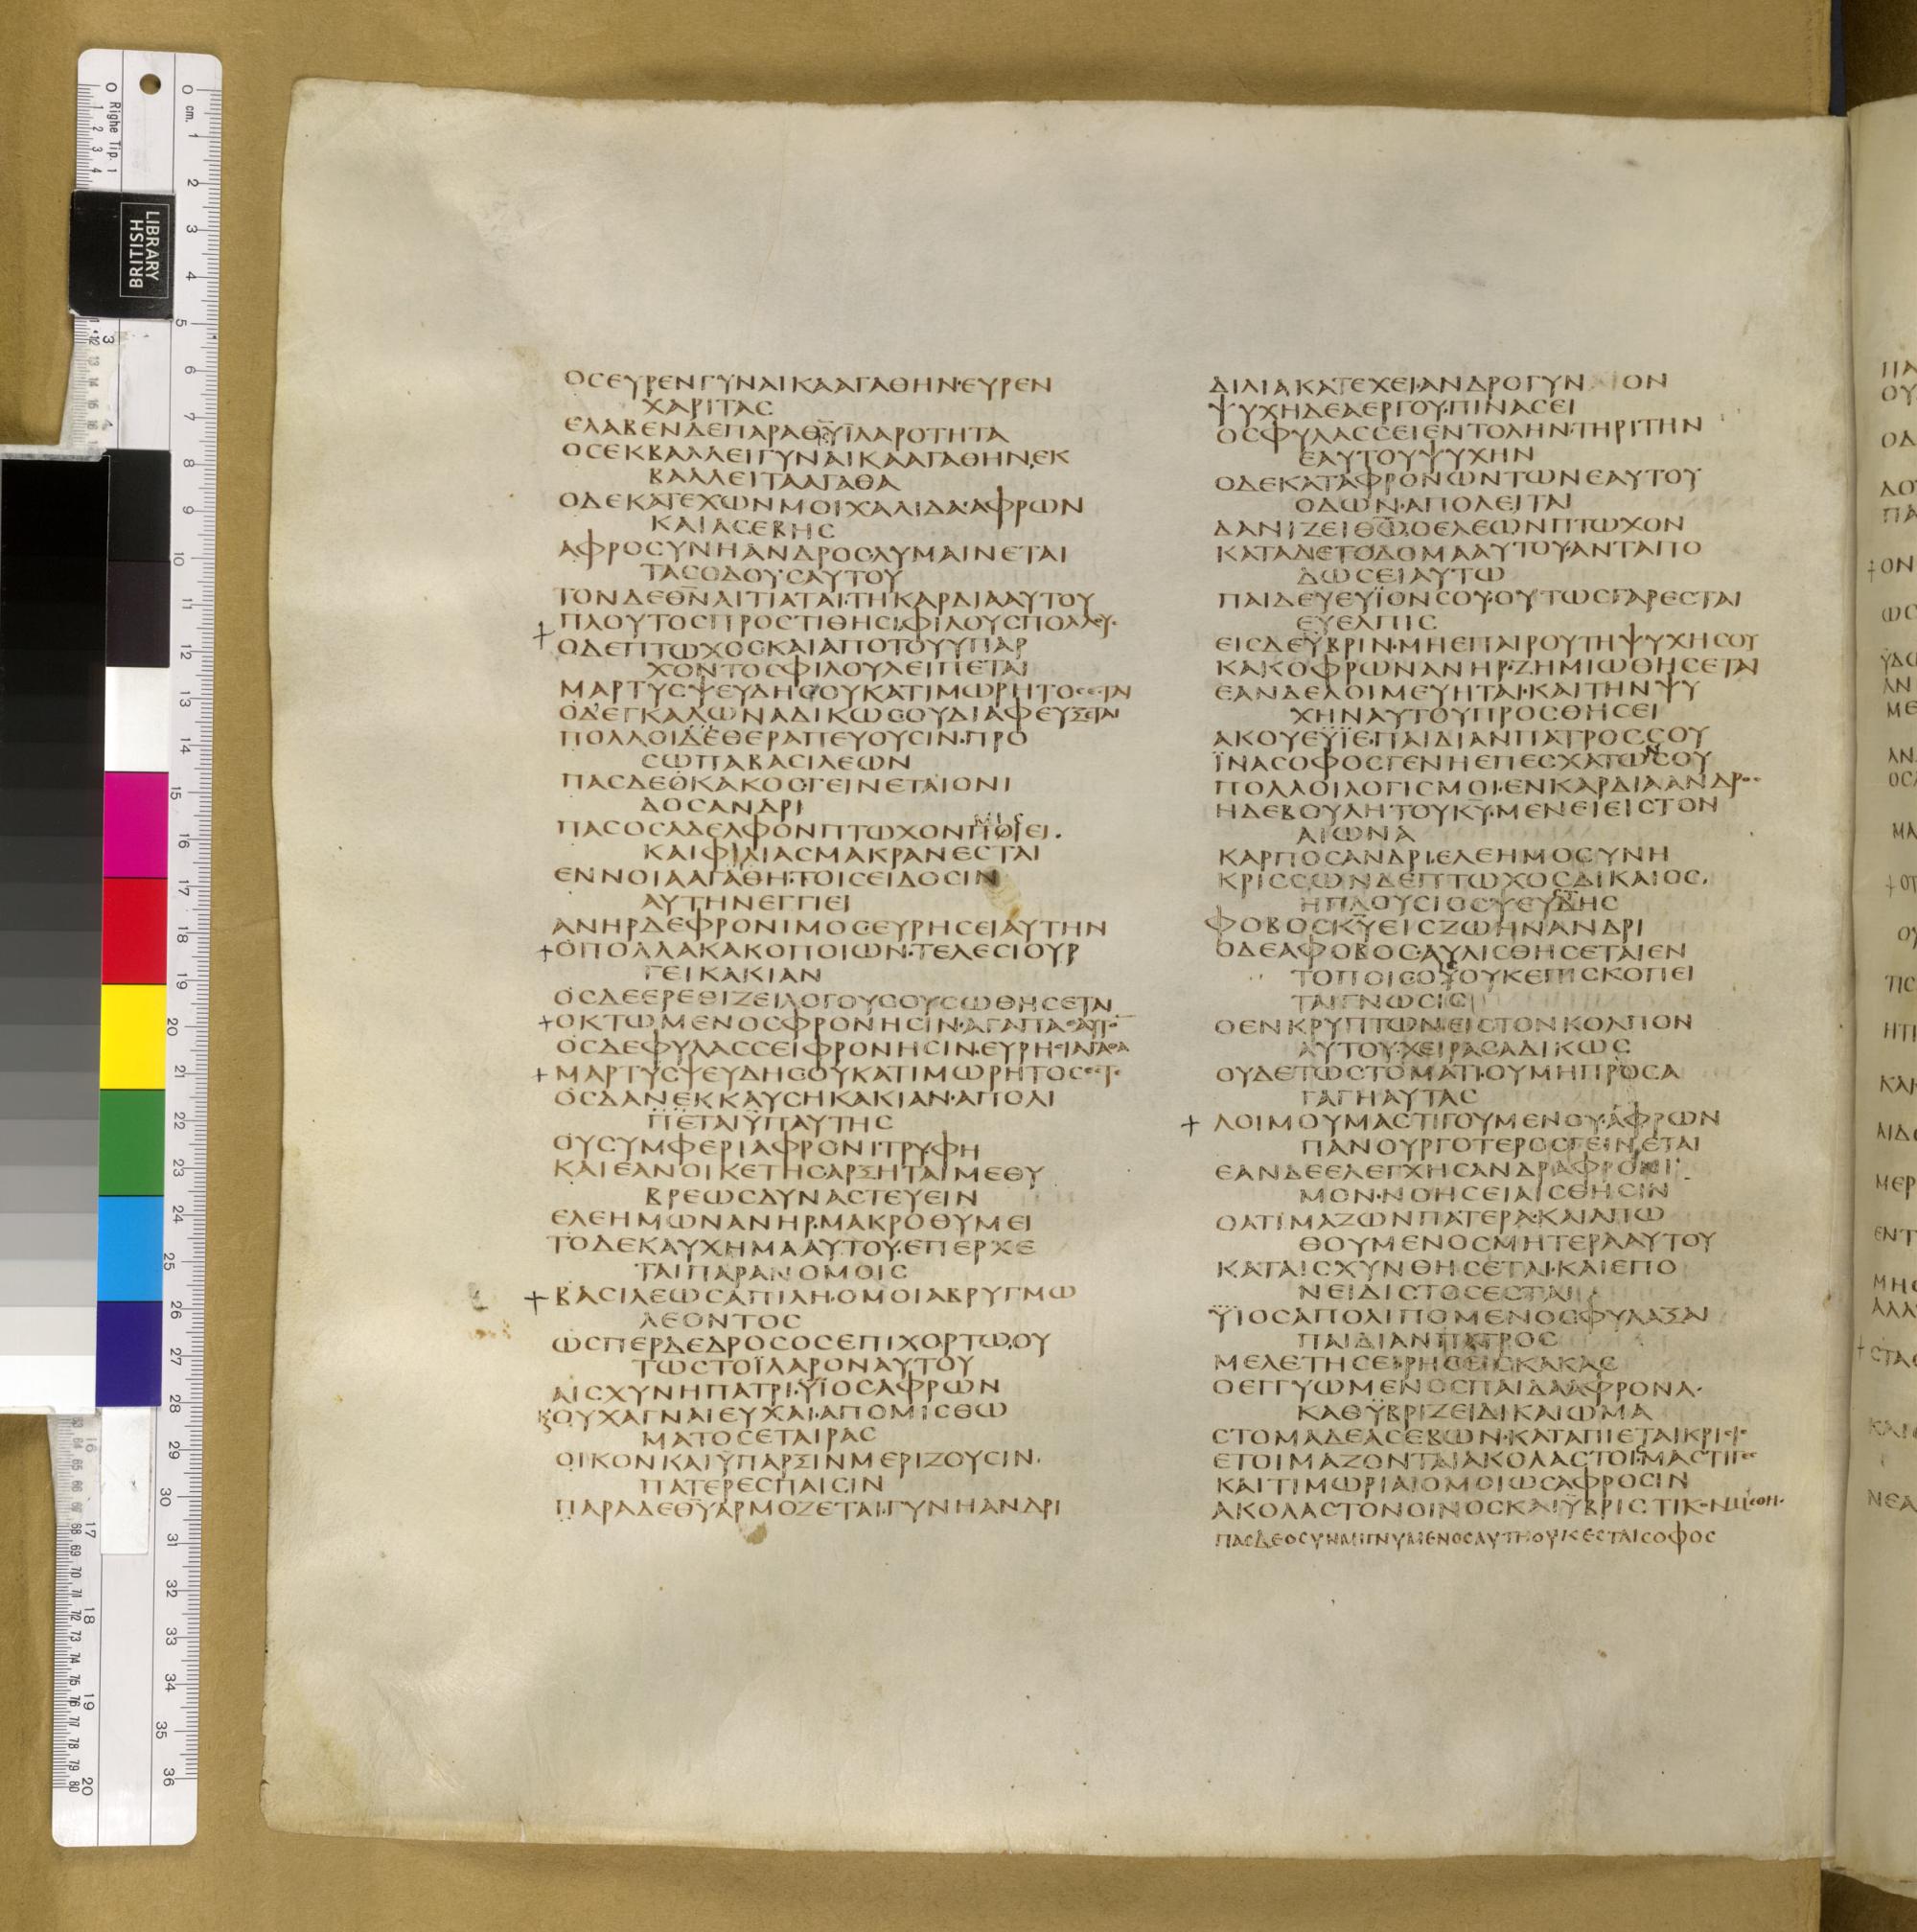 ΟϹΕΥΡΕΝΓΥΝΑΙΚΑΑΓΑΘΗΝ·ΕΥΡΕΝ
ΧΑΡΙΤΑϹ
ΕΛΑΒΕΝΔΕΠΑΡΑΘ̅Υ̅ΪΛΑΡΟΤΗΤΑ
ΟϹΕΚΒΑΛΛΕΙΓΥΝΑΙΚΑΑΓΑΘΗΝ·ΕΚ
ΒΑΛΛΕΙΤΑΑΓΑΘΑ
ΟΔΕΚΑΤΕΧΩΝΜΟΙΧΑΛΙΔΑ·ΑΦΡΩΝ
ΚΑΙΑϹΕΒΗϹ
ΑΦΡΟϹΥΝΗΑΝΔΡΟϹΛΥΜΑΙΝΕΤΑΙ
ΤΑϹΟΔΟΥϹΑΥΤΟΥ
ΤΟΝΔΕΘ̅Ν̅ΑΙΤΙΑΤΑΙ·ΤΗΚΑΡΔΙΑΑΥΤΟΥ
ΠΛΟΥΤΟϹΠΡΟϹΤΙΘΗϹΙ·ΦΙΛΟΥϹΠΟΛΛΟΥϹ
ΟΔΕΠΤΩΧΟϹΚΑΙΑΠΟΤΟΥΥΠΑΡ
ΧΟΝΤΟϹΦΙΛΟΥΛΕΙΠΕΤΑΙ
ΜΑΡΤΥϹΨΕΥΔΗϹΟΥΚΑΤΙΜΩΡΗΤΟϹΕϹΤΑΙ
ΟΔΕΓΚΑΛΩΝΑΔΙΚΩϹΟΥΔΙΑΦΕΥΞΕΤΑΙ
ΠΟΛΛΟΙΔΕΘΕΡΑΠΕΥΟΥϹΙΝ·ΠΡΟ
ϹΩΠΑΒΑϹΙΛΕΩΝ
ΠΑϹΔΕΟΚΑΚΟϹΓΕΙΝΕΤΑΙΟΝΙ
ΔΟϹΑΝΔΡΙ
ΠΑϹΟϹΑΔΕΛΦΟΝΠΤΩΧΟΝΜΙϹΕΙ
ΚΑΙΦΙΛΙΑϹΜΑΚΡΑΝΕϹΤΑΙ
ΕΝΝΟΙΑΑΓΑΘΗ·ΤΟΙϹΕΙΔΟϹΙΝ
ΑΥΤΗΝΕΓΓΙΕΙ
ΑΝΗΡΔΕΦΡΟΝΙΜΟϹΕΥΡΗϹΕΙΑΥΤΗΝ
+ΟΠΟΛΛΑΚΑΚΟΠΟΙΩΝ·ΤΕΛΕϹΙΟΥΡ
ΓΕΙΚΑΚΙΑΝ
ΟϹΔΕΕΡΕΘΙΖΕΙΛΟΓΟΥϹΟΥϹΩΘΗϹΕΤΑΙ
+ΟΚΤΩΜΕΝΟϹΦΡΟΝΗϹΙΝ·ΑΓΑΠΑΕΑΥΤΟ
ΟϹΔΕΦΥΛΑϹϹΕΙΦΡΟΝΗϹΙΝ·ΕΥΡΗϹΙΑΓΑΘΑ
+ΜΑΡΤΥϹΨΕΥΔΗϹΟΥΚΑΤΙΜΩΡΗΤΟϹΕϹΤΑΙ
ΟϹΔΑΝΕΚΚΑΥϹΗΚΑΚΙΑΝ·ΑΠΟΛΙ
ΠΕΤΑΙΫΠΑΥΤΗϹ
ΟΥϹΥΜΦΕΡΙΑΦΡΟΝΙΤΡΥΦΗ
ΚΑΙΕΑΝΟΙΚΕΤΗϹΑΡΞΗΤΑΙΜΕΘΥ
ΒΡΕΩϹΔΥΝΑϹΤΕΥΕΙΝ
ΕΛΕΗΜΩΝΑΝΗΡ·ΜΑΚΡΟΘΥΜΕΙ
ΤΟΔΕΚΑΥΧΗΜΑΑΥΤΟΥ·ΕΠΕΡΧΕ
ΤΑΙΠΑΡΑΝΟΜΟΙϹ
+ΒΑϹΙΛΕΩϹΑΠΙΛΗ·ΟΜΟΙΑΒΡΥΓΜΩ
ΛΕΟΝΤΟϹ
ΩϹΠΕΡΔΕΔΡΟϹΟϹΕΠΙΧΟΡΤΩ·ΟΥ
ΤΩϹΤΟΪΛΑΡΟΝΑΥΤΟΥ
ΑΙϹΧΥΝΗΠΑΤΡΙ·ΥΪΟϹΑΦΡΩΝ
ΟΥΧΑΓΝΑΙΕΥΧΑΙ·ΑΠΟΜΙϹΘΩ
ΜΑΤΟϹΕΤΑΙΡΑϹ
ΟΙΚΟΝΚΑΙΫΠΑΡΞΙΝΜΕΡΙΖΟΥϹΙΝ·
ΠΑΤΕΡΕϹΠΑΙϹΙΝ
ΠΑΡΑΔΕΘ̅Υ̅ΑΡΜΟΖΕΤΑΙ·ΓΥΝΗΑΝΔΡΙ
ΔΙΛΙΑΚΑΤΕΧΕΙ·ΑΝΔΡΟΓΥΝΑΙΟΝ
ΨΥΧΗΔΕΑΕΡΓΟΥ·ΠΙΝΑϹΕΙ
ΟϹΦΥΛΑϹϹΕΙΕΝΤΟΛΗΝ·ΤΗΡΙΤΗΝ
ΕΑΥΤΟΥΨΥΧΗΝ
ΟΔΕΚΑΤΑΦΡΟΝΩΝΤΩΝΕΑΥΤΟΥ
ΟΔΩΝ·ΑΠΟΛΕΙΤΑΙ
ΔΑΝΙΖΕΙΘ̅Ω̅·ΟΕΛΕΩΝΠΤΩΧΟΝ
ΚΑΤΑΔΕΤΟΔΟΜΑΑΥΤΟΥ·ΑΝΤΑΠΟ
ΔΩϹΕΙΑΥΤΩ
ΠΑΙΔΕΥΕΥΪΟΝϹΟΥ·ΟΥΤΩϹΓΑΡΕϹΤΑΙ
ΕΥΕΛΠΙϹ
ΕΙϹΔΕΫΒΡΙΝ·ΜΗΕΠΑΙΡΟΥΤΗΨΥΧΗϹΟΥ
ΚΑΚΟΦΡΩΝΑΝΗΡ·ΖΗΜΙΩΘΗϹΕΤΑΙ
ΕΑΝΔΕΛΟΙΜΕΥΗΤΑΙ·ΚΑΙΤΗΝΨΥ
ΧΗΝΑΥΤΟΥΠΡΟϹΘΗϹΕΙ
ΑΚΟΥΕΫΪΕ·ΠΑΙΔΙΑΝΠΑΤΡΟϹϹΟΥ
ΪΝΑϹΟΦΟϹΓΕΝΗΕΠΕϹΧΑΤΩΝϹΟΥ
ΠΟΛΛΟΙΛΟΓΙϹΜΟΙ·ΕΝΚΑΡΔΙΑΑΝΔΡΟϹ
ΗΔΕΒΟΥΛΗΤΟΥΚ̅Υ̅·ΜΕΝΕΙΕΙϹΤΟΝ
ΑΙΩΝΑ
ΚΑΡΠΟϹΑΝΔΡΙ·ΕΛΕΗΜΟϹΥΝΗ
ΚΡΙϹϹΩΝΔΕΠΤΩΧΟϹΔΙΚΑΙΟϹ·
ΗΠΛΟΥϹΙΟϹΨΕΥΔΗϹ
ΦΟΒΟϹΚ̅Υ̅ΕΙϹΖΩΗΝΑΝΔΡΙ
ΟΔΕΑΦΟΒΟϹ·ΑΥΛΙϹΘΗϹΕΤΑΙΕΝ
ΤΟΠΟΙϹΟΥΟΥΚΕΠΙϹΚΟΠΕΙ
ΤΑΙΓΝΩϹΙϹ
ΟΕΝΚΡΥΠΤΩΝ·ΕΙϹΤΟΝΚΟΛΠΟΝ
ΑΥΤΟΥ·ΧΕΙΡΑϹΑΔΙΚΩϹ
ΟΥΔΕΤΩϹΤΟΜΑΤΙ·ΟΥΜΗΠΡΟϹΑ
ΓΑΓΗΑΥΤΑϹ
+ ΛΟΙΜΟΥΜΑϹΤΙΓΟΥΜΕΝΟΥ·ΑΦΡΩΝ
ΠΑΝΟΥΡΓΟΤΕΡΟϹΓΕΙΝΕΤΑΙ
ΕΑΝΔΕΕΛΕΓΧΗϹΑΝΔΡΑΦΡΟΝΙ
ΜΟΝ·ΝΟΗϹΕΙΑΙϹΘΗϹΙΝ
ΟΑΤΙΜΑΖΩΝΠΑΤΕΡΑ·ΚΑΙΑΠΩ
ΘΟΥΜΕΝΟϹΜΗΤΕΡΑΑΥΤΟΥ
ΚΑΤΑΙϹΧΥΝΘΗϹΕΤΑΙ·ΚΑΙΕΠΟ
ΝΕΙΔΙϹΤΟϹΕϹΤΑΙ
ΫΪΟϹΑΠΟΛΙΠΟΜΕΝΟϹΦΥΛΑΞΑΙ
ΠΑΙΔΙΑΝΠΑΤΡΟϹ
ΜΕΛΕΤΗϹΕΙΡΗϹΕΙϹΚΑΚΑϹ
ΟΕΓΓΥΩΜΕΝΟϹΠΑΙΔΑΑΦΡΟΝΑ·
ΚΑΘΫΒΡΙΖΕΙΔΙΚΑΙΩΜΑ
ϹΤΟΜΑΔΕΑϹΕΒΩΝ·ΚΑΤΑΠΙΕΤΑΙΚΡΙϹΙϹ
ΕΤΟΙΜΑΖΟΝΤΑΙΑΚΟΛΑϹΤΟΙϹΜΑϹΤΙΓΕϹ
ΚΑΙΤΙΜΩΡΙΑΙΟΜΟΙΩϹΑΦΡΟϹΙΝ
ΑΚΟΛΑϹΤΟΝΟΙΝΟϹΚΑΙΫΒΡΙϹΤΙΚΟΝΜΕΘΗ·
ΠΑϹΔΕΟϹΥΝΜΙΓΝΥΜΕΝΟϹΑΥΤΗΟΥΚΕϹΤΑΙϹΟΦΟϹ
BRITISH
LIBRARY
Righe Tip. 1
cm.